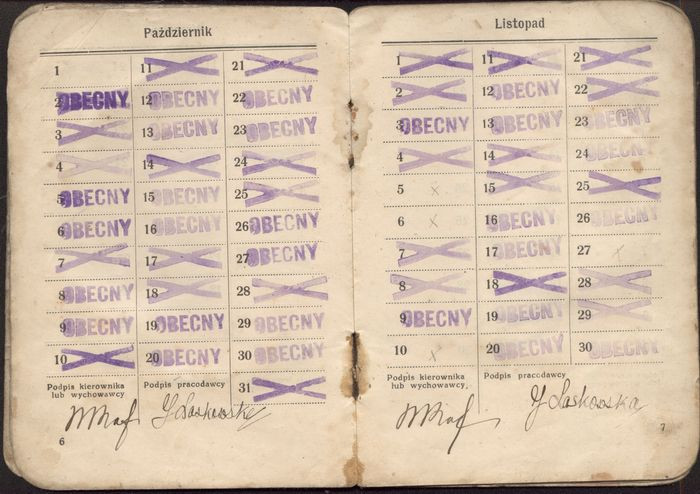 Październik
1
2 OBECNY
3
4
5 OBECNY
6 OBECNY
7
8 OBECNY
9 OBECNY
10
11
12 OBECNY
13 OBECNY
14
15 OBECNY
16 OBECNY
17
18
19 OBECNY
20 OBECNY
21
22 OBECNY
23 OBECNY
24
25
26 OBECNY
27 OBECNY
28
29 OBECNY
30 OBECNY
31
Podpis kierownika
lub wychowawcy
Podpis pracodawcy
J Laskowska
6
Listopad
1
2
3 OBECNY
4
5 x
6 x
7
8
9 OBECNY
10 x
11
12 OBECNY
13 OBECNY
14
15
16 OBECNY
17 OBECNY
18
19 OBECNY
20 OBECNY
21
22
23 OBECNY
24 OBECNY
25
26 OBECNY
27 x
28
29
30 OBECNY
Podpis kierownika
lub wychowawcy
Podpis pracodawcy
J Laskowska
7